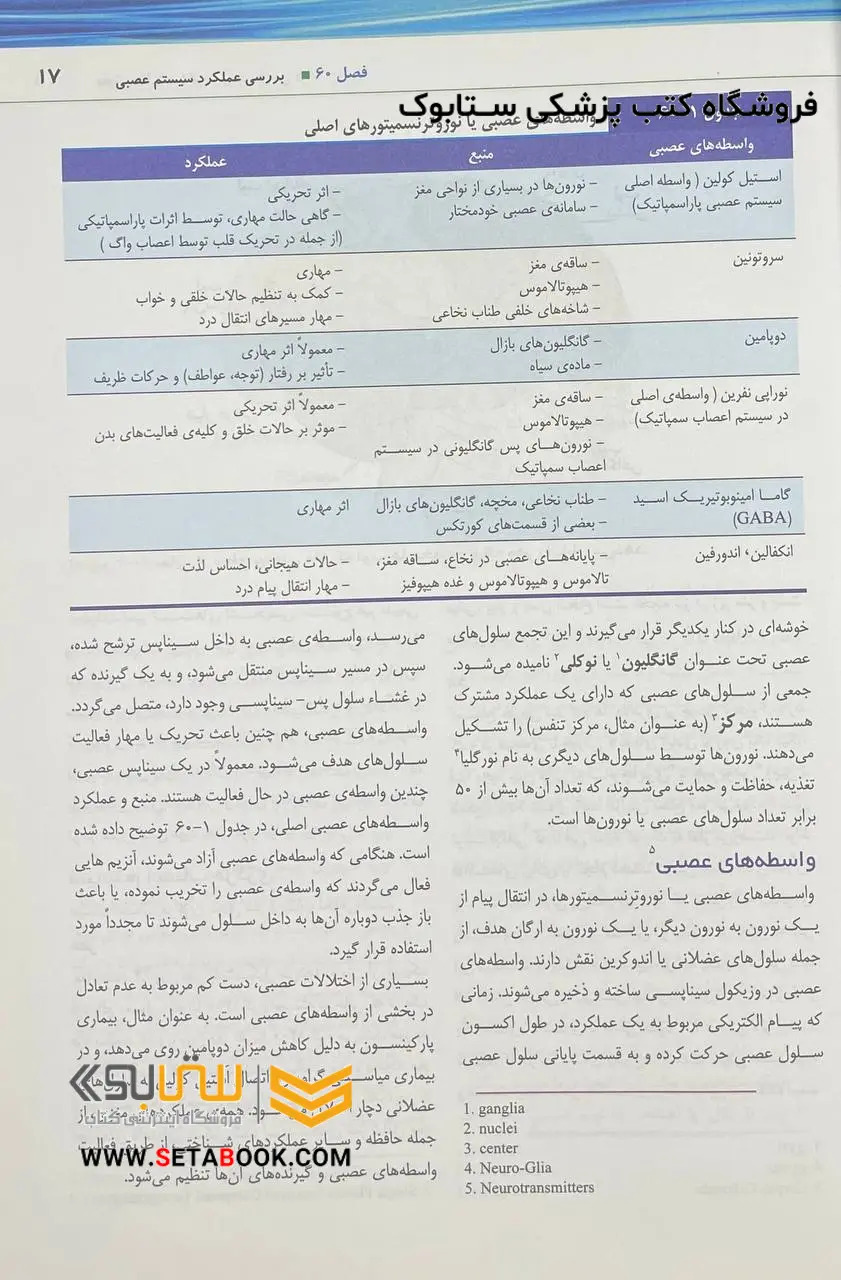 فصل ۶۰ ■ بررسی عملکرد سیستم عصبی ۱۷
فروشگاه کتب پزشکی ستابوک
واسطه‌های عصبی یا نوروترنسمیتورهای اصلی
واسطه‌های عصبی منبع عملکرد
استیل کولین ( واسطه اصلی سیستم عصبی پاراسمپاتیک)
– نورون‌ها در بسیاری از نواحی مغز
– سامانه‌ی عصبی خودمختار
– اثر تحریکی
– گاهی حالت مهاری، توسط اثرات پاراسمپاتیکی
(از جمله در تحریک قلب توسط اعصاب واگ )
سروتونین
– ساقه‌ی مغز
– هیپوتالاموس
– شاخه‌های خلفی طناب نخاعی
– مهاری
– کمک به تنظیم حالات خلقی و خواب
– مهار مسیرهای انتقال درد
دوپامین
– گانگلیون‌های بازال
– ماده‌ی سیاه
– معمولاً اثر مهاری
– تأثیر بر رفتار (توجه، عواطف) و حرکات ظریف
نوراپی نفرین ( واسطه‌ی اصلی
در سیستم اعصاب سمپاتیک)
– ساقه‌ی مغز
– هیپوتالاموس
– نورون‌های پس گانگلیونی در سیستم
اعصاب سمپاتیک
– معمولاً اثر تحریکی
– موثر بر حالات خلق و کلیه‌ی فعالیت‌های بدن
گاما امینوبوتیریک اسید
(GABA)
– طناب نخاعی، مخچه، گانگلیون‌های بازال
– بعضی از قسمت‌های کورتکس
اثر مهاری
انکفالین، اندورفین
– پایانه‌های عصبی در نخاع، ساقه مغز،
تالاموس و هیپوتالاموس و غده هیپوفیز
– حالات هیجانی، احساس لذت
– مهار انتقال پیام درد
خوشه‌ای در کنار یکدیگر قرار می‌گیرند و این تجمع سلول‌های
عصبی تحت عنوان گانگلیون۱ یا نوکلی۲ نامیده می‌شود.
جمعی از سلول‌های عصبی که دارای یک عملکرد مشترک
هستند، مرکز۳ (به عنوان مثال، مرکز تنفس) را تشکیل
می‌دهند. نورون‌ها توسط سلول‌های دیگری به نام نورگلیا۴
تغذیه، حفاظت و حمایت می‌شوند، که تعداد آن‌ها بیش از ۵۰
برابر تعداد سلول‌های عصبی یا نورون‌ها است.
واسطه‌های عصبی۵
واسطه‌های عصبی یا نوروترنسمیتورها، در انتقال پیام از
یک نورون به نورون دیگر، یا یک نورون به ارگان هدف، از
جمله سلول‌های عضلانی یا اندوکرین نقش دارند. واسطه‌های
عصبی در وزیکول سیناپسی ساخته و ذخیره می‌شوند. زمانی
که پیام الکتریکی مربوط به یک عملکرد، در طول اکسون
سلول عصبی حرکت کرده و به قسمت پایانی سلول عصبی
1. ganglia
2. nuclei
3. center
4. Neuro-Glia
5. Neurotransmitters
می‌رسد، واسطه‌ی عصبی به داخل سیناپس ترشح شده،
سپس در مسیر سیناپس منتقل می‌شود، و به یک گیرنده که
در غشاء سلول پس- سیناپسی وجود دارد، متصل می‌گردد.
واسطه‌های عصبی، هم چنین باعث تحریک یا مهار فعالیت
سلول‌های هدف می‌شود. معمولاً در یک سیناپس عصبی،
چندین واسطه‌ی عصبی در حال فعالیت هستند. منبع و عملکرد
واسطه‌های عصبی اصلی، در جدول ۱-۶۰ توضیح داده شده
است. هنگامی که واسطه‌های عصبی آزاد می‌شوند، آنزیم هایی
فعال می‌گردند که واسطه‌ی عصبی را تخریب نموده، یا باعث
باز جذب دوباره آن‌ها به داخل سلول می‌شوند تا مجدداً مورد
استفاده قرار گیرد.
بسیاری از اختلالات عصبی، دست کم مربوط به عدم تعادل
در بخشی از واسطه‌های عصبی است. به عنوان مثال، بیماری
پارکینسون به دلیل کاهش میزان دوپامین روی می‌دهد، و در
بیماری میاستنی گراو، اتصال استیل کولین به سلول‌های
عضلانی دچار می‌شود. همه‌ی عملکردهای مغزی از
جمله حافظه و سایر عملکردهای شناختی از طریق فعالیت
واسطه‌های عصبی و گیرنده‌های آن‌ها تنظیم می‌شود.
ستابوک
فروشگاه اینترنتی کتاب
WWW.SETABOOK.COM